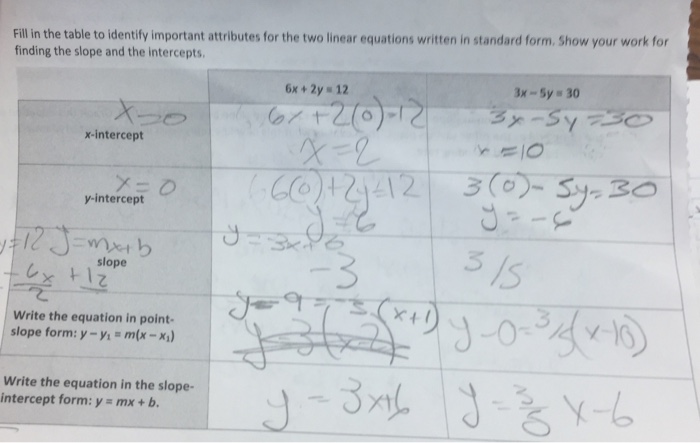 Fill in the table to identify important attributes for the two linear equations written in standard form. Show your work for
finding the slope and the intercepts.
6x + 2y = 12
3x – 5y = 30
x=0
x-intercept
6x+2(0)=12
x=2
3x-5y=30
x=10
x=0
y-intercept
6(0)+2y=12
y=6
3(0)-5y=30
y=-6
y=12 y=mx+b
slope
-6x +12
2
y=-3x+6
-3
3/5
Write the equation in point-
slope form: y – y₁ = m(x – x₁)
y-9=-3(x+1)
y-0=3/5(x-10)
Write the equation in the slope-
intercept form: y = mx + b.
y=3x+6
y=3/5 x-6